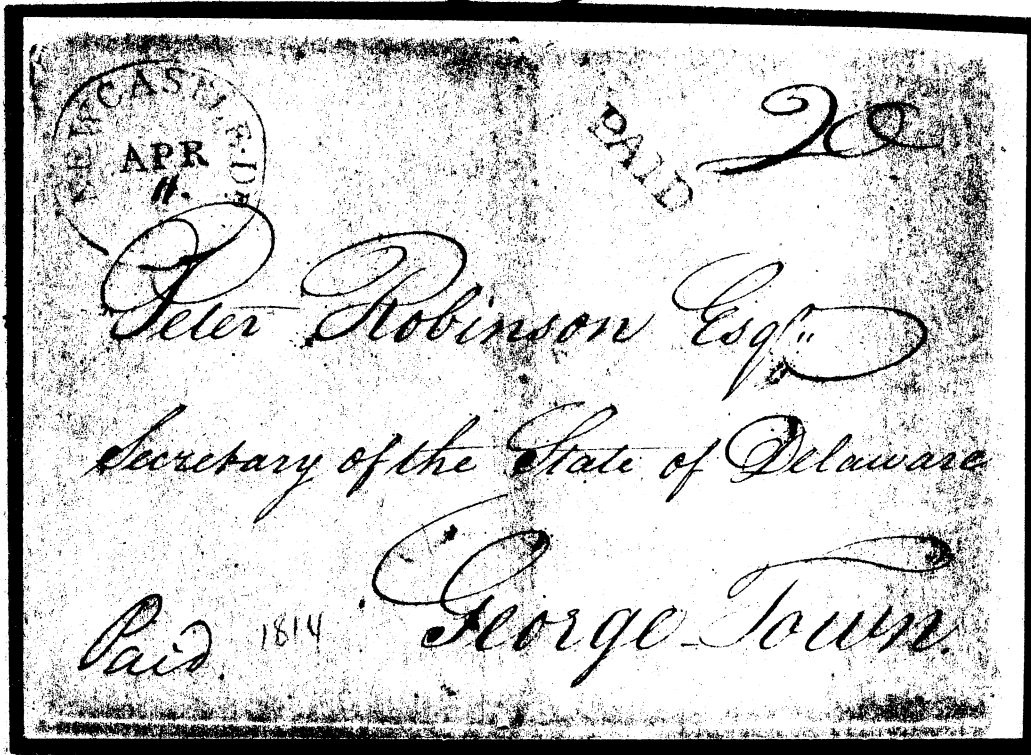 NEWCASTLE.D
APR
11.
PAID
20
Peter Robinson Esqr.
Secretary of the State of Delaware
George Town.
Paid.
1814